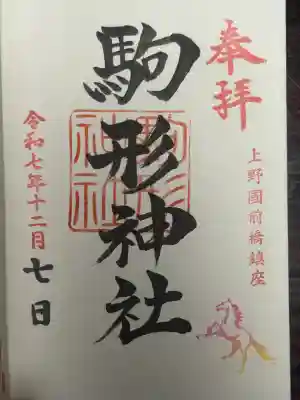 奉拝
上野國前橋鎮座
駒形神社
駒形神社
令和七年十二月七日